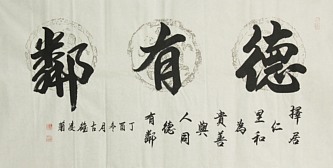 德有鄰
擇居
仁
里和
為
貴善
與
人同
德
有鄰
丁酉